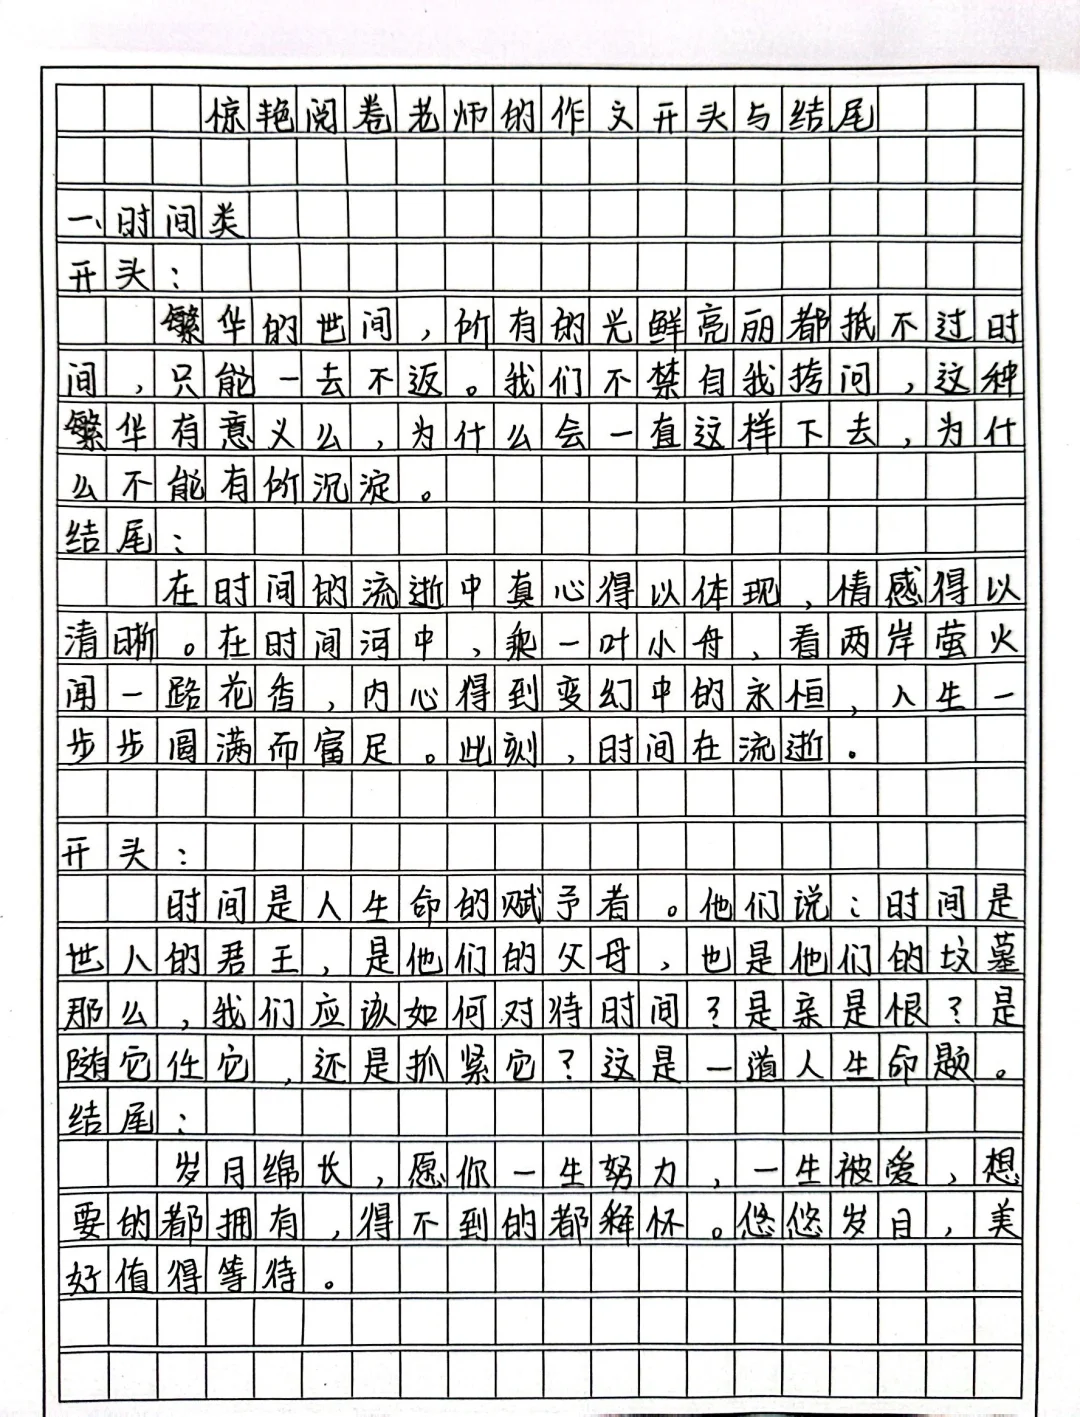 惊艳阅卷老师的作文开头与结尾
一、时间类
开头：
繁华的世间，所有的光鲜亮丽都抵不过时
间，只能一去不返。我们不禁自我拷问，这种
繁华有意义么，为什么会一直这样下去，为什
么不能有所沉淀。
结尾：
在时间的流逝中真心得以体现，情感得以
清晰。在时间河中，乘一叶小舟，看两岸萤火
闻一路花香，内心得到变幻中的永恒，人生一
步步圆满而富足。此刻，时间在流逝。
开头：
时间是人生命的赋予者。他们说：时间是
世人的君王，是他们的父母，也是他们的坟墓
那么，我们应该如何对待时间？是亲是恨？是
随它任它，还是抓紧它？这是一道人生命题。
结尾：
岁月绵长，愿你一生努力，一生被爱，想
要的都拥有，得不到的都释怀。悠悠岁月，美
好值得等待。